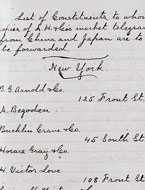 List of Constituents to whom
copies of A. H. & Co's market telegrams
from China and Japan are to
be forwarded.
New York.
B. G. Arnold & Co.
125 Front St.
A. Begoden
Bucklin Crane & Co.
45 South St.
Horace Gray & Co.
H. Victor Love
108 Front St